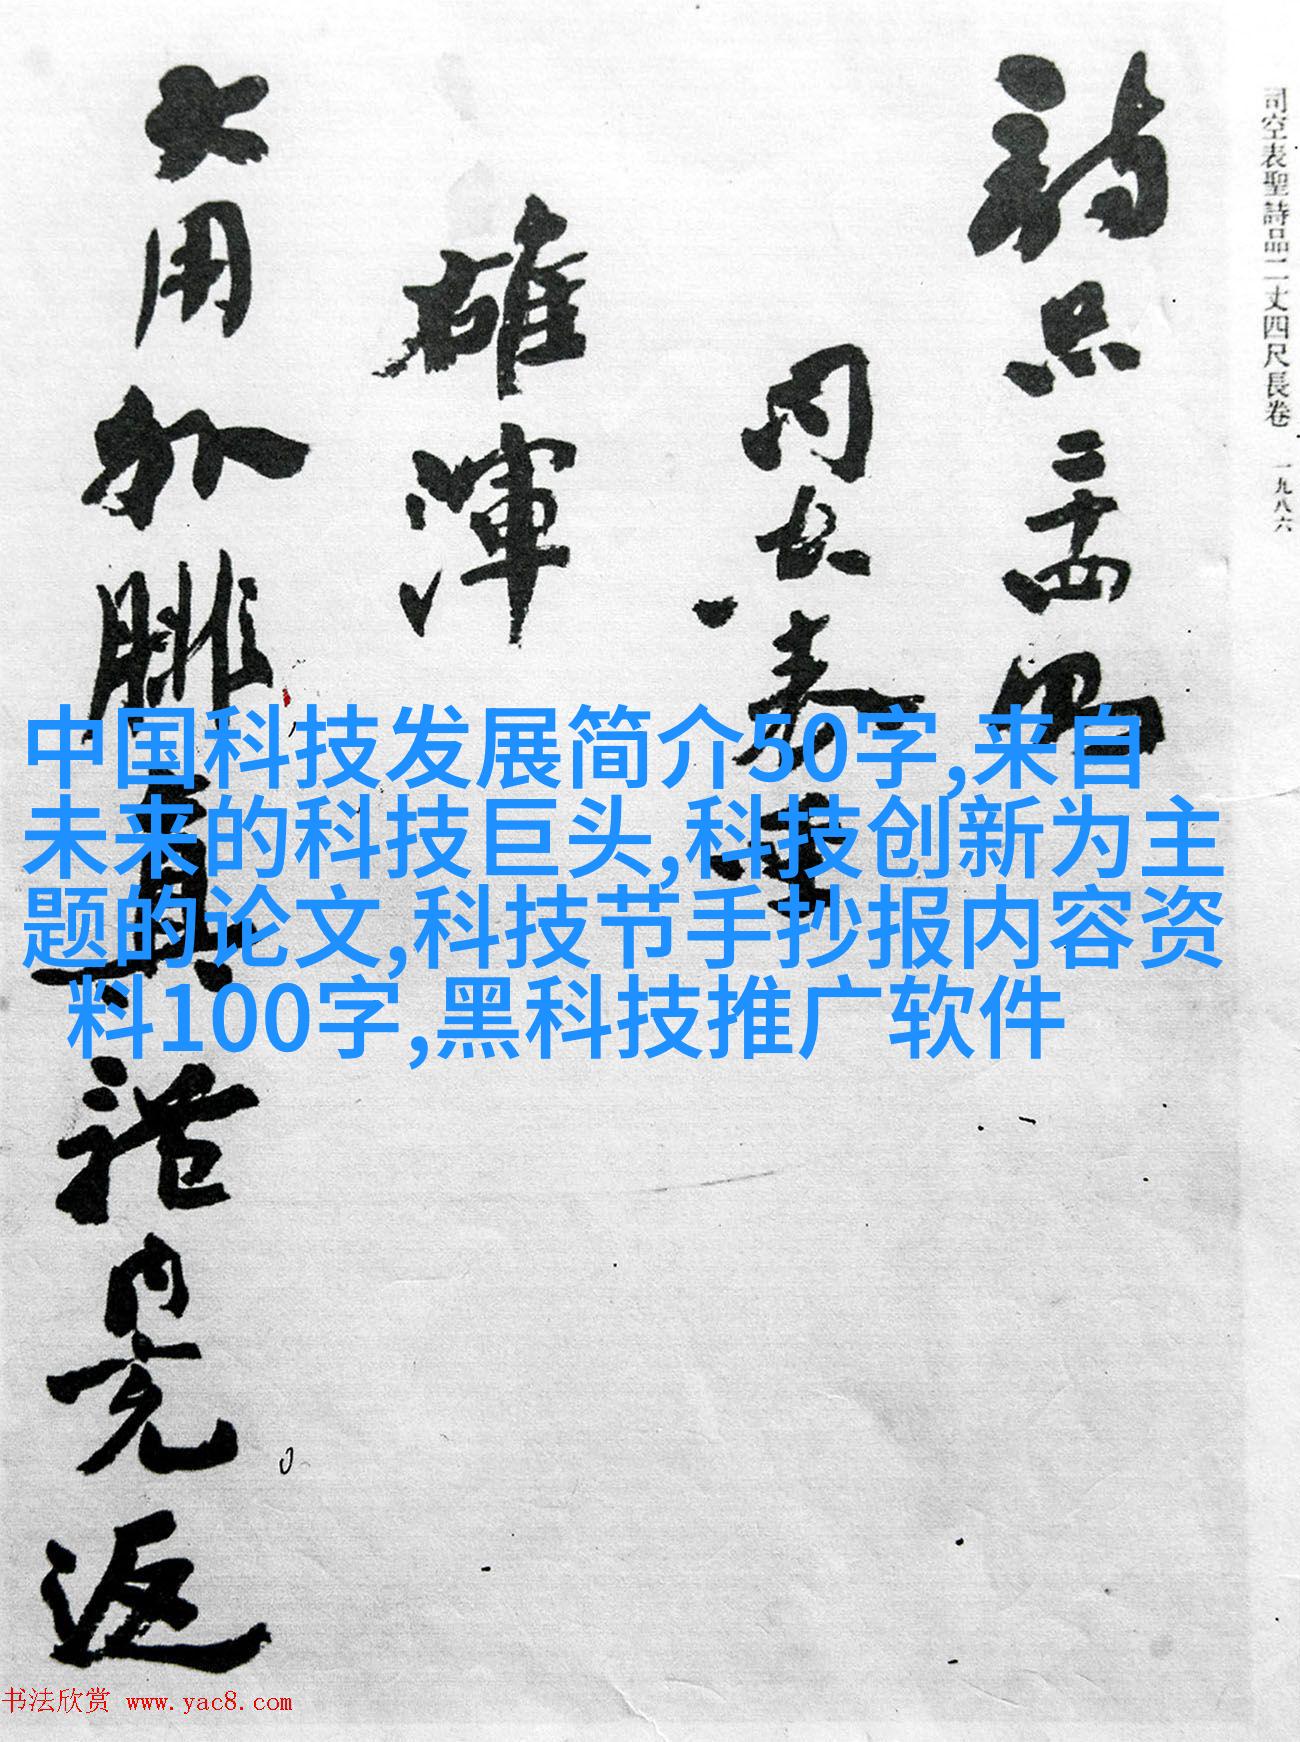 司空表聖詩品二丈四尺長卷 一九八六
詩品二十四
司空表聖
雄渾
大用外腓真體內充返
中国科技发展简介50字,来自
未来的科技巨头,科技创新为主
题的论文,科技节手抄报内容资
料100字,黑科技推广软件
书法欣赏 www.yac8.com